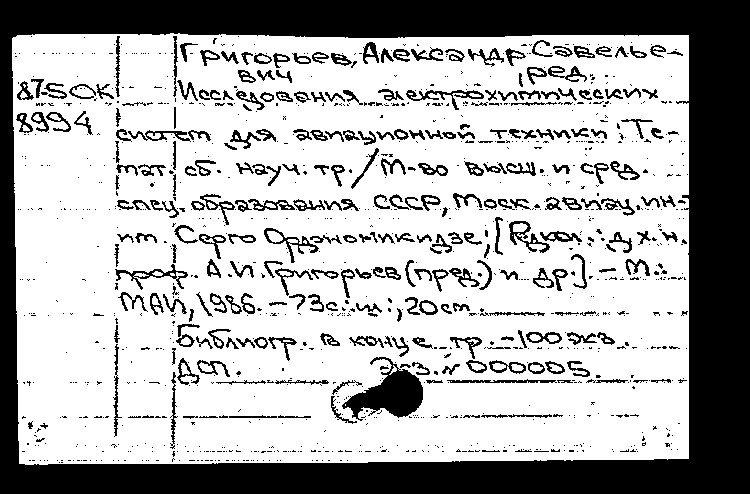 Григорьев, Александр Савелье-
вич , ред.
87-5ОК Исследования электрохимических
8994
систем для авиационной техники : Те-
мат. сб. науч. тр. / М-во высш. и сред.
спец. образования СССР, Моск. авиац. ин-т
им. Серго Орджоникидзе; [Редкол.: д. х. н.
проф. А. И. Григорьев (пред.) и др.]. - М.:
МАИ, 1986. - 73 с.: ил.; 20 см.
Библиогр. в конце тр. - 100 экз.
ДСП. Экз. № 000005.